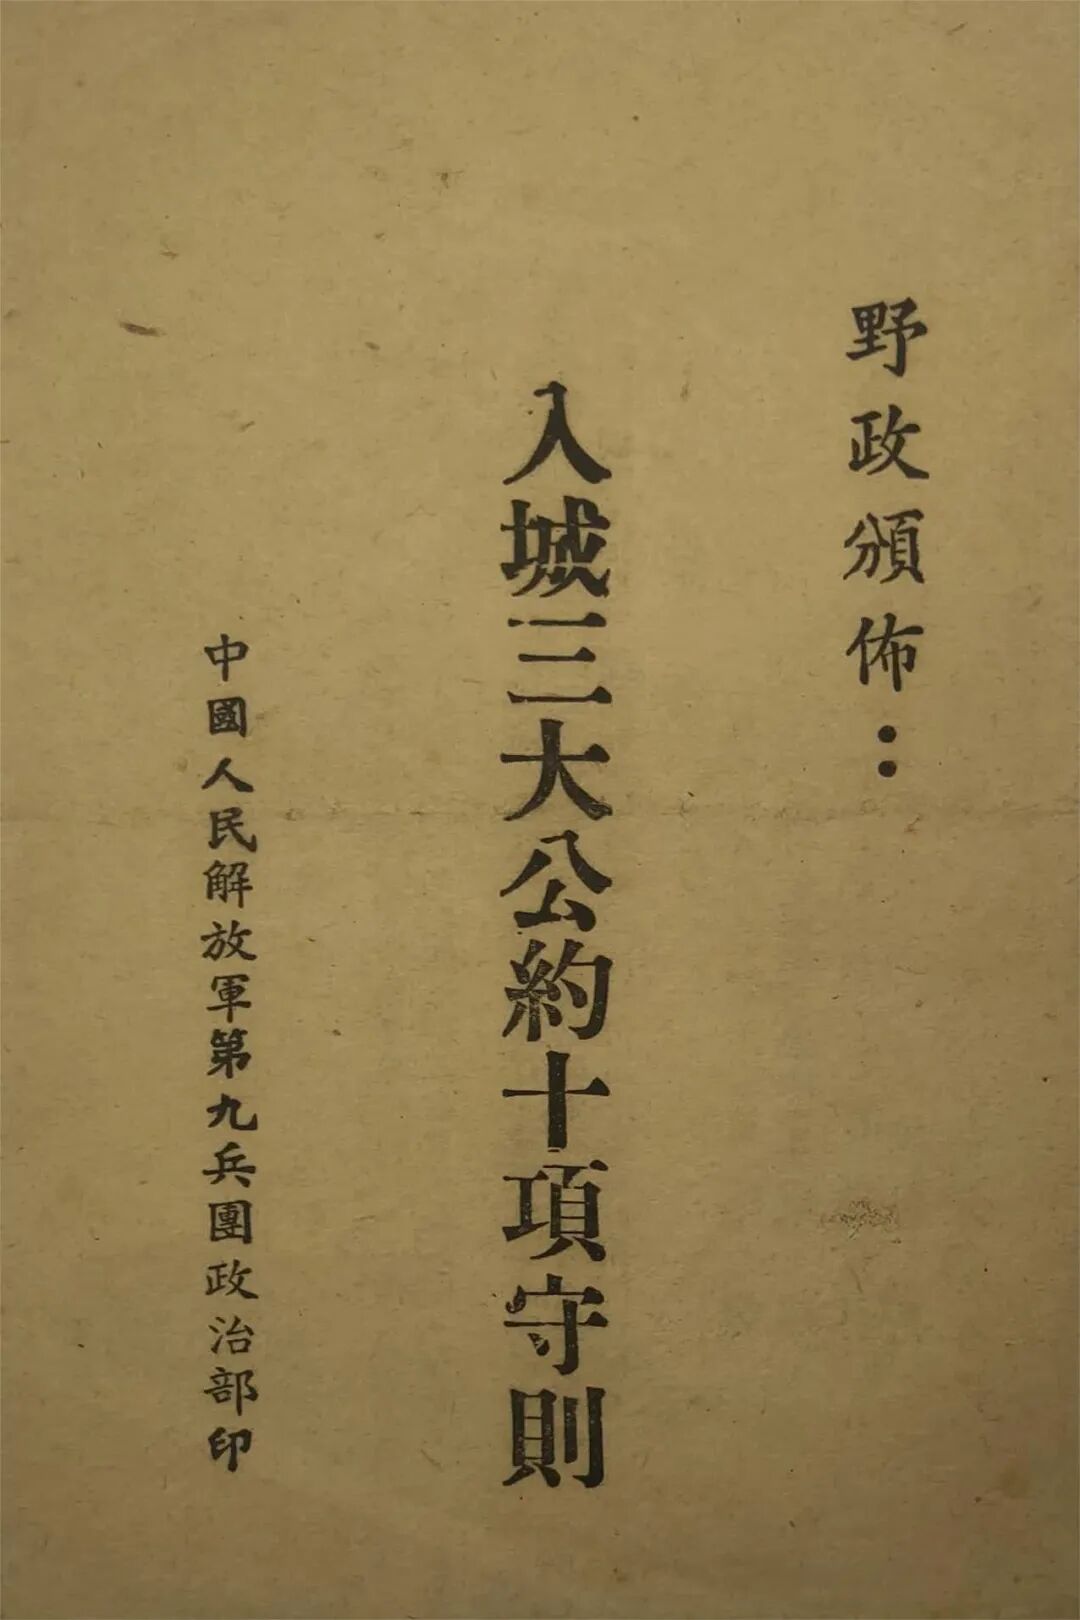 野政頒佈：
入城三大公約十項守則
中國人民解放軍第九兵團政治部印